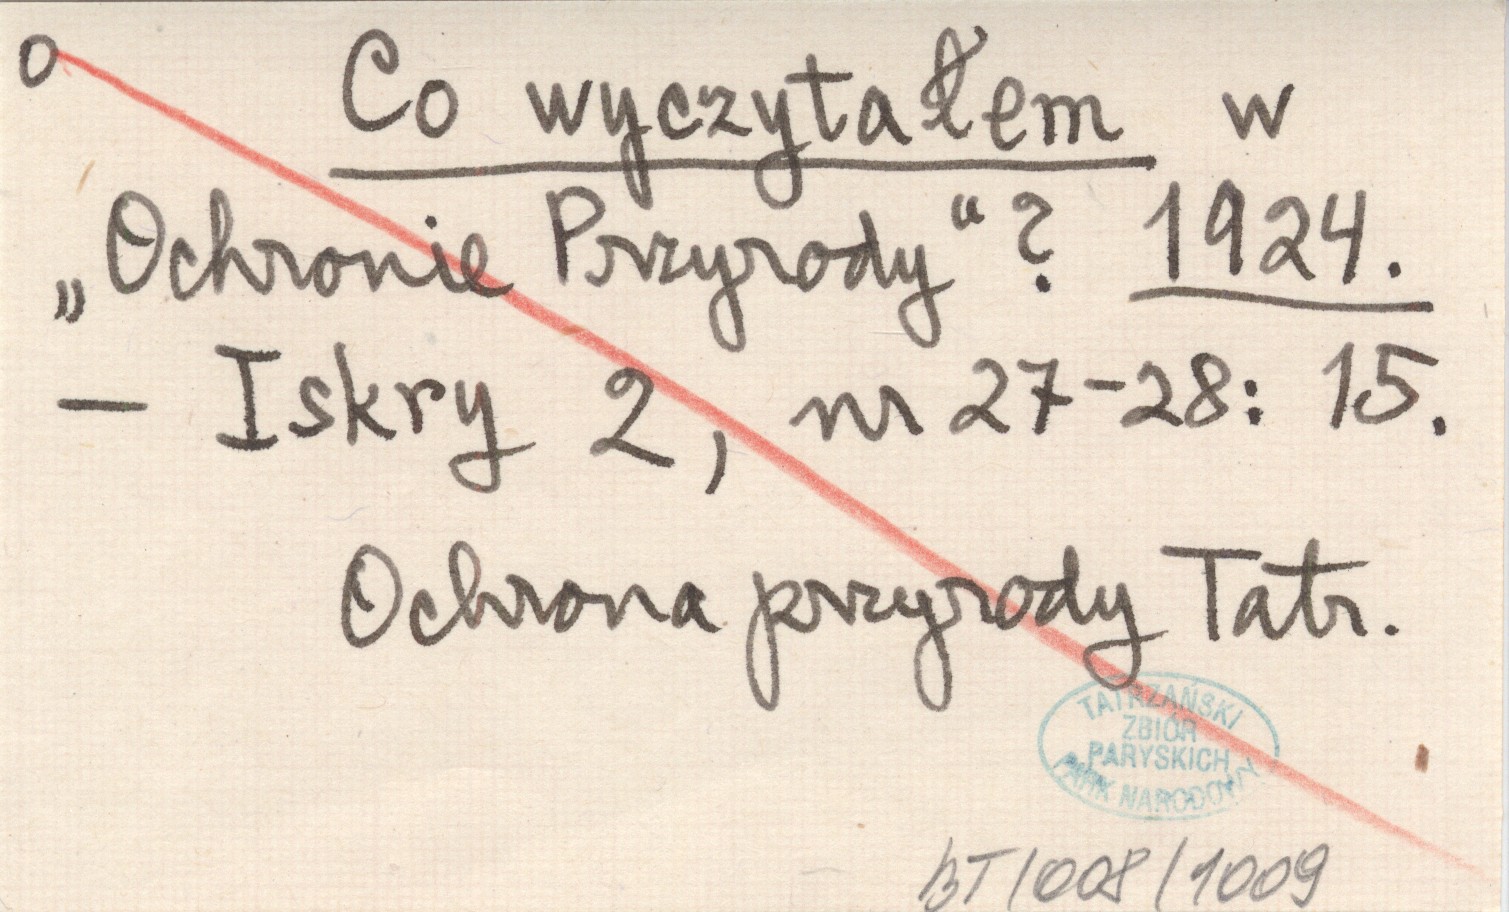 o Co wyczytałem w
„Ochronie Przyrody“? 1924.
— Iskry 2, nr 27-28: 15.
Ochrona przyrody Tatr.
TATRZAŃSKI
ZBIÓR
PARYSKICH
PARK NARODOWY
BT/008/1009